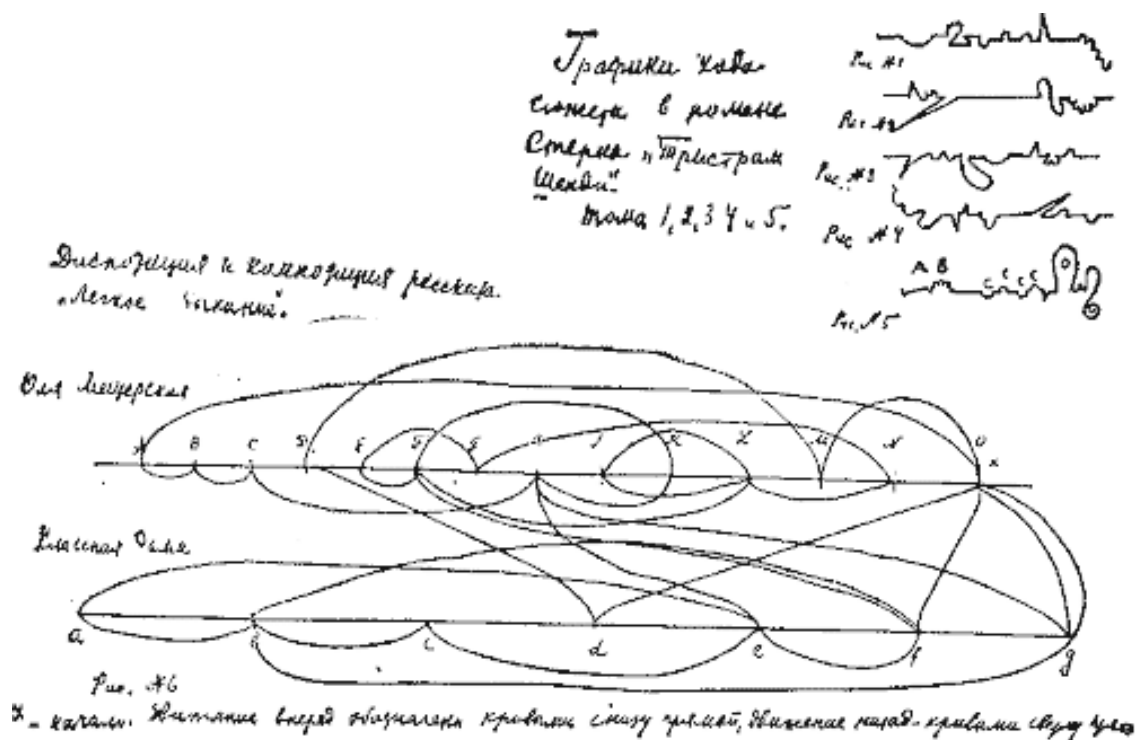 Графики хода
сюжета в романе
Стерна „Тристрам
Шенди".
тома 1, 2, 3 4 и 5.
Рис №1
Рис. №2
Рис. №3
Рис №4
A B C C C C D
Рис. №5
Диспозиция и композиция рассказа.
„Легкое дыхание".
Оля Мещерская
A B C D E F G H J K L M N O
x
Классная Дама
a b c d e f g
Рис. №6
X – начало. Движение вперед обозначено кривыми снизу прямой, движение назад - кривыми сверху